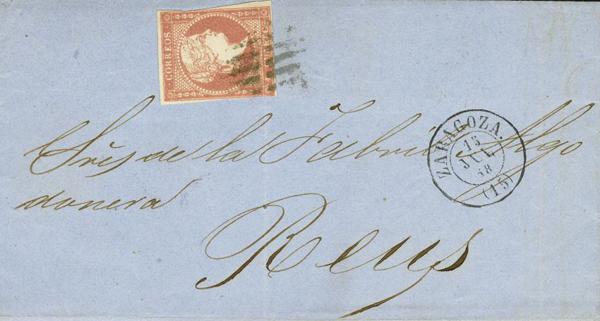 CORREOS
ZARAGOZA.
13
JUL.
58
(15)
Sres de la Fabrica Algo
donera
Reus